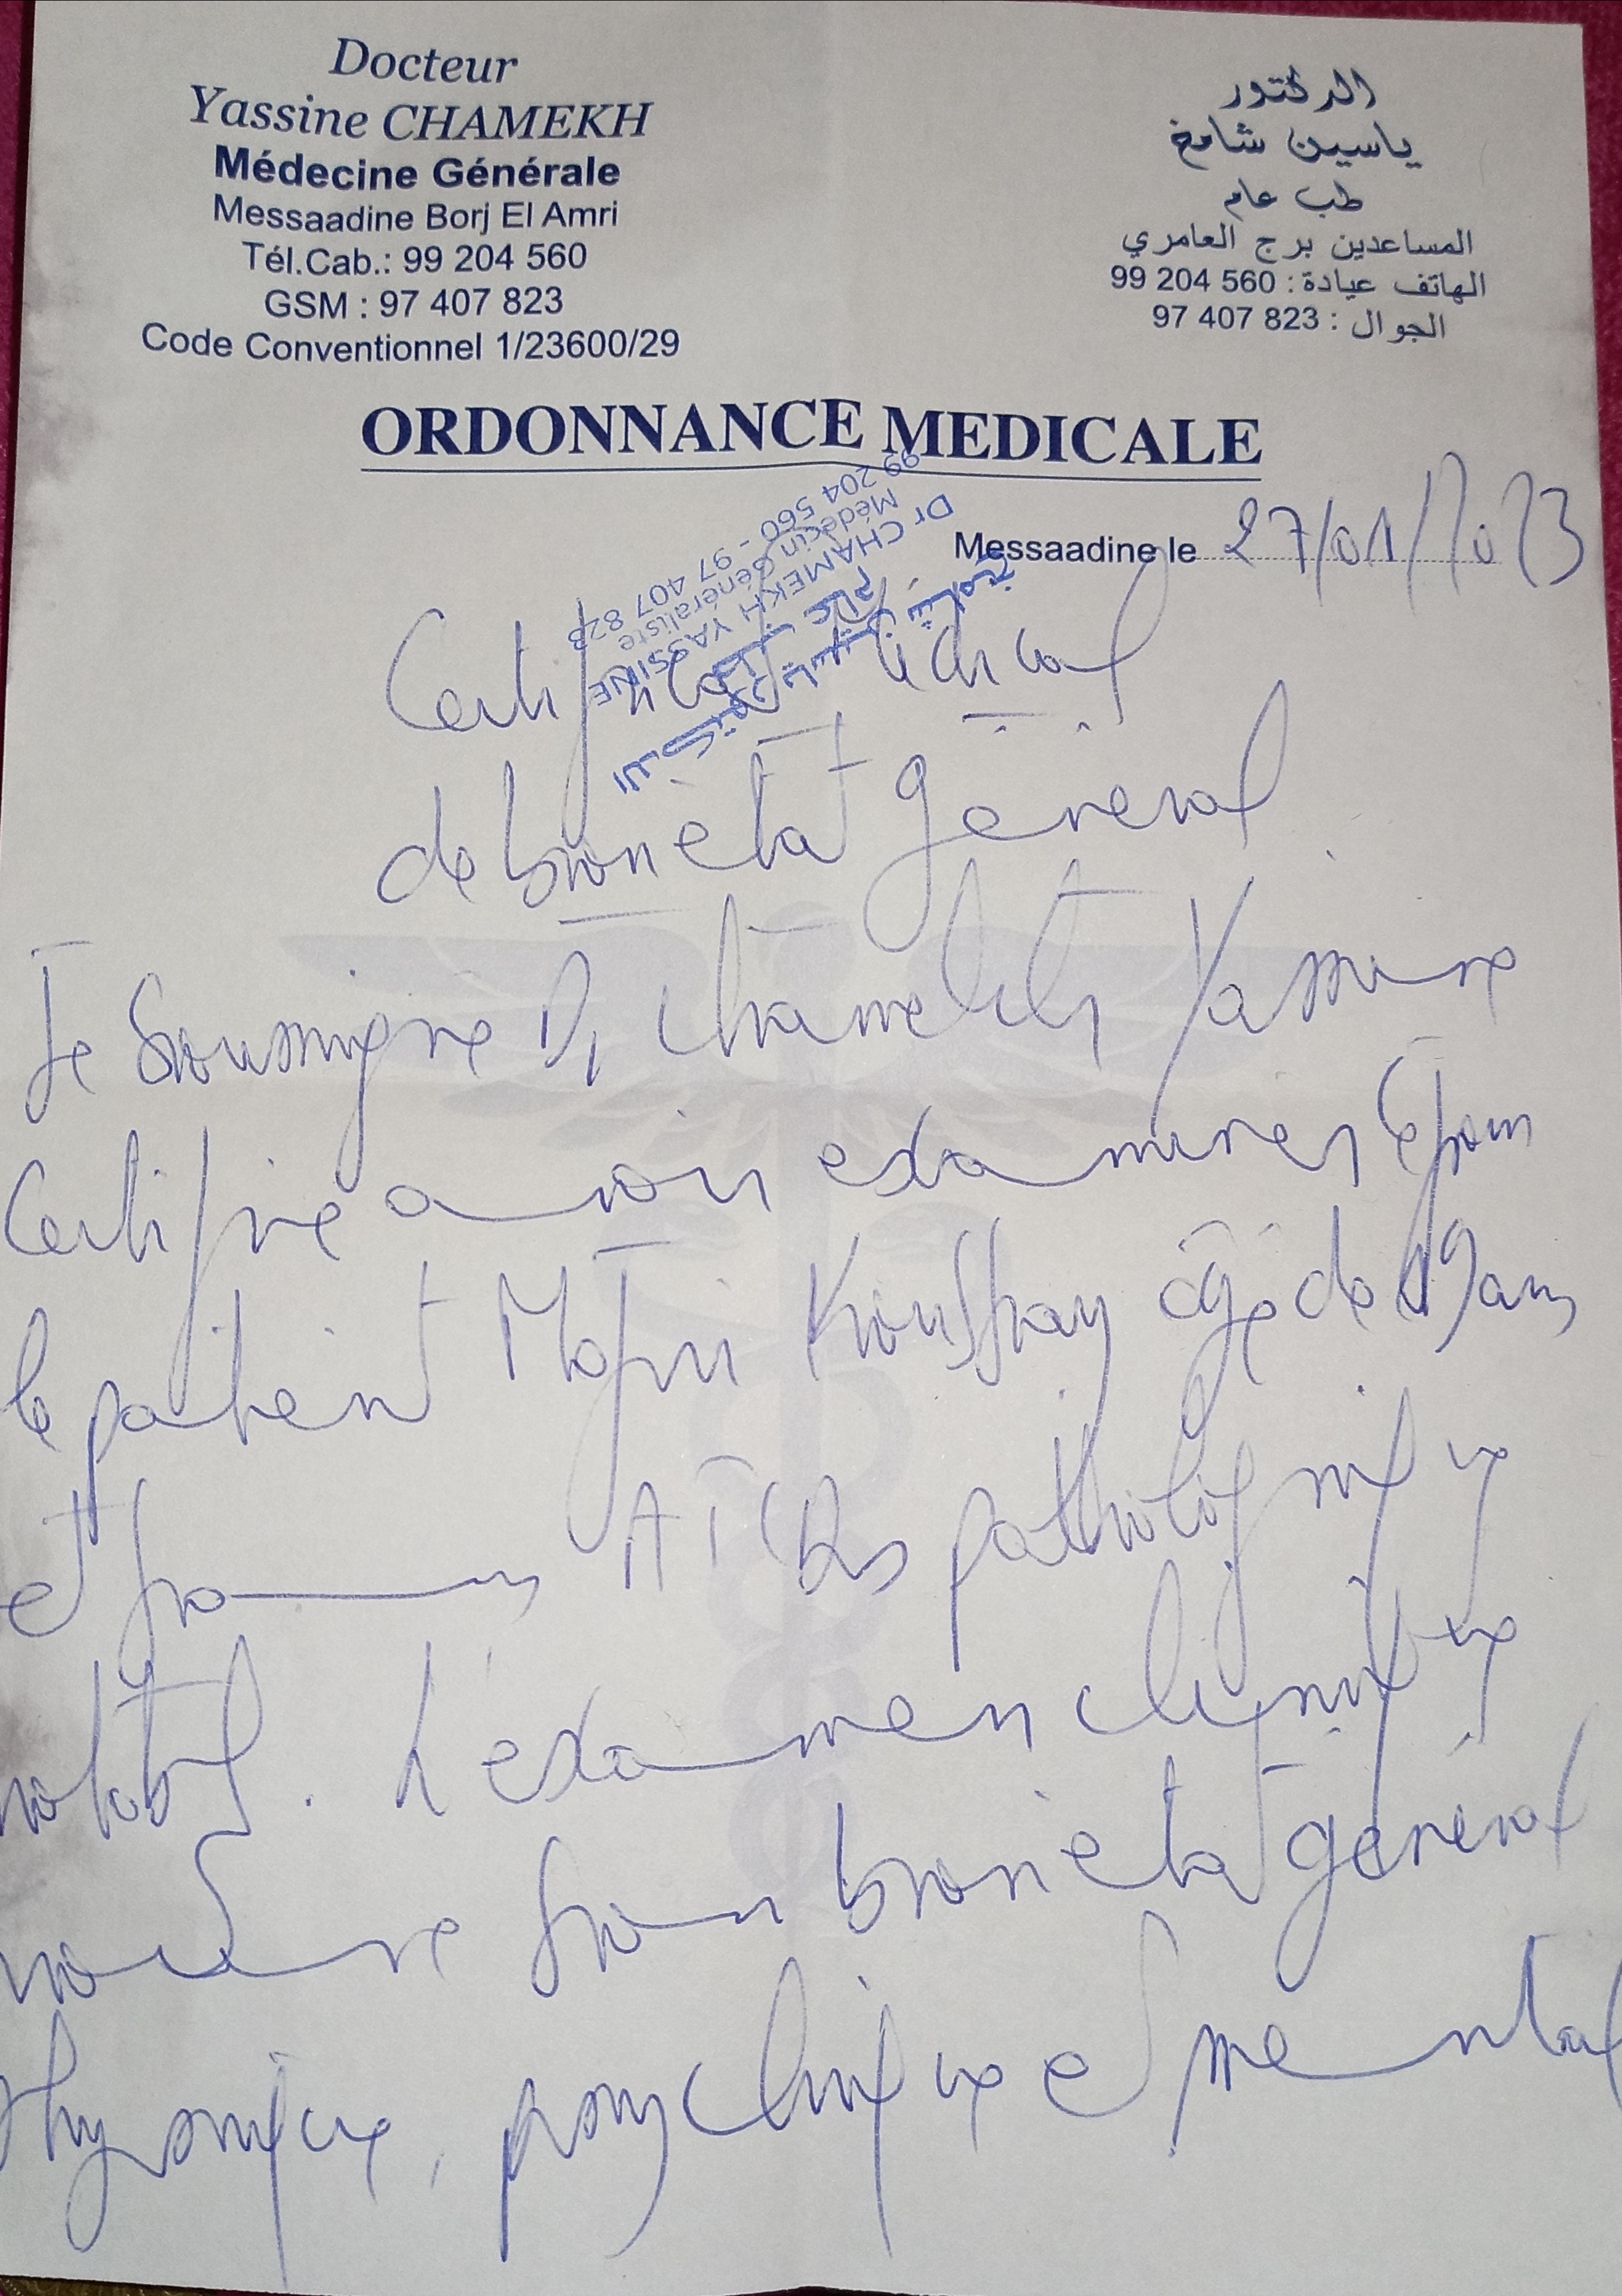 Docteur
Yassine CHAMEKH
Médecine Générale
Messaadine Borj El Amri
Tél.Cab.: 99 204 560
GSM : 97 407 823
Code Conventionnel 1/23600/29
الدكتور
ياسين شامخ
طب عام
المساعدين برج العامري
الهاتف عيادة : 560 204 99
الجوال : 823 407 97
ORDONNANCE MEDICALE
Messaadine le 27/01/2023
Dr CHAMEKH YASSINE
Médecin Généraliste
99 204 560 - 97 407 823
الدكتور ياسين شامخ
طب عام
Certificat Médical
de bon état général
Je soussigné Dr Chamekh Yassine
Certifie avoir examiner ce jour
le patient Mejri Koussay âgé de 19 ans
et sans ATCDs pathologique
notable. L'examen clinique
montre son bon état général
physique, psychique et mental